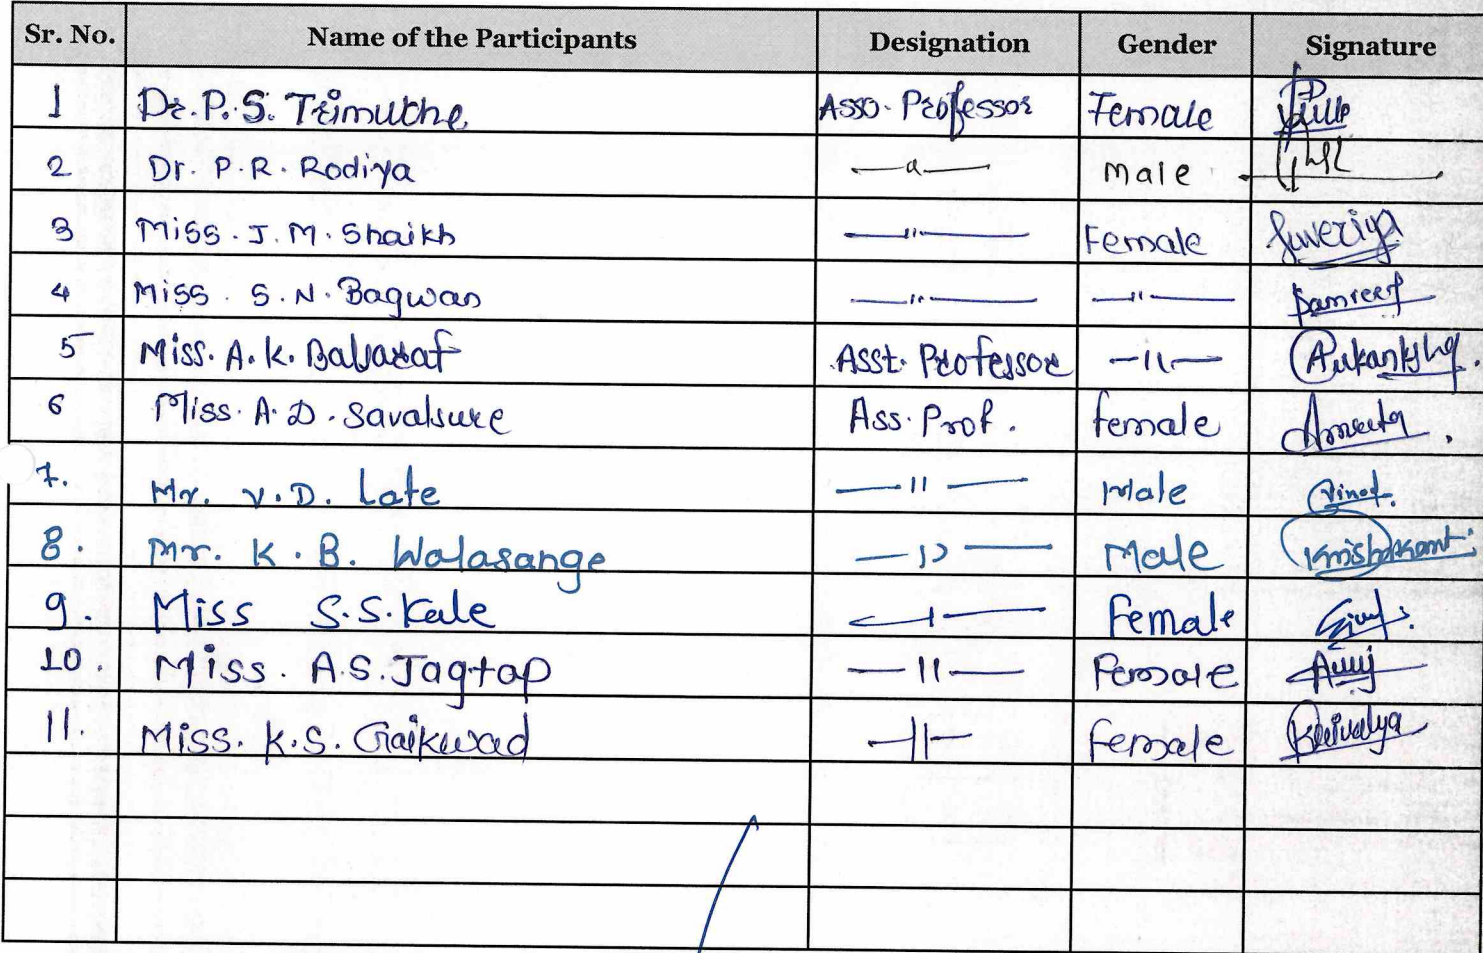 Sr. No. Name of the Participants Designation Gender Signature
1 Dr. P. S. Trimukhe Asso. Professor Female
2 Dr. P. R. Rodiya —〃— male
3 Miss. J. M. Shaikh —〃— Female Juveriya
4 Miss. S. N. Bagwan —〃— —〃—
5 Miss. A. K. Asst. Professor —〃— Aukanksha.
6 Miss. A. D. Savalsure Ass. Prof. female Amruta.
7. Mr. V. D. Late —〃— Male Vinod.
8. Mr. K. B. Walasange —〃— Male Krishnakant
9. Miss S. S. Kale —〃— Female
10. Miss. A. S. Jagtap —〃— Female
11. Miss. K. S. Gaikwad —〃— Female Kaivalya